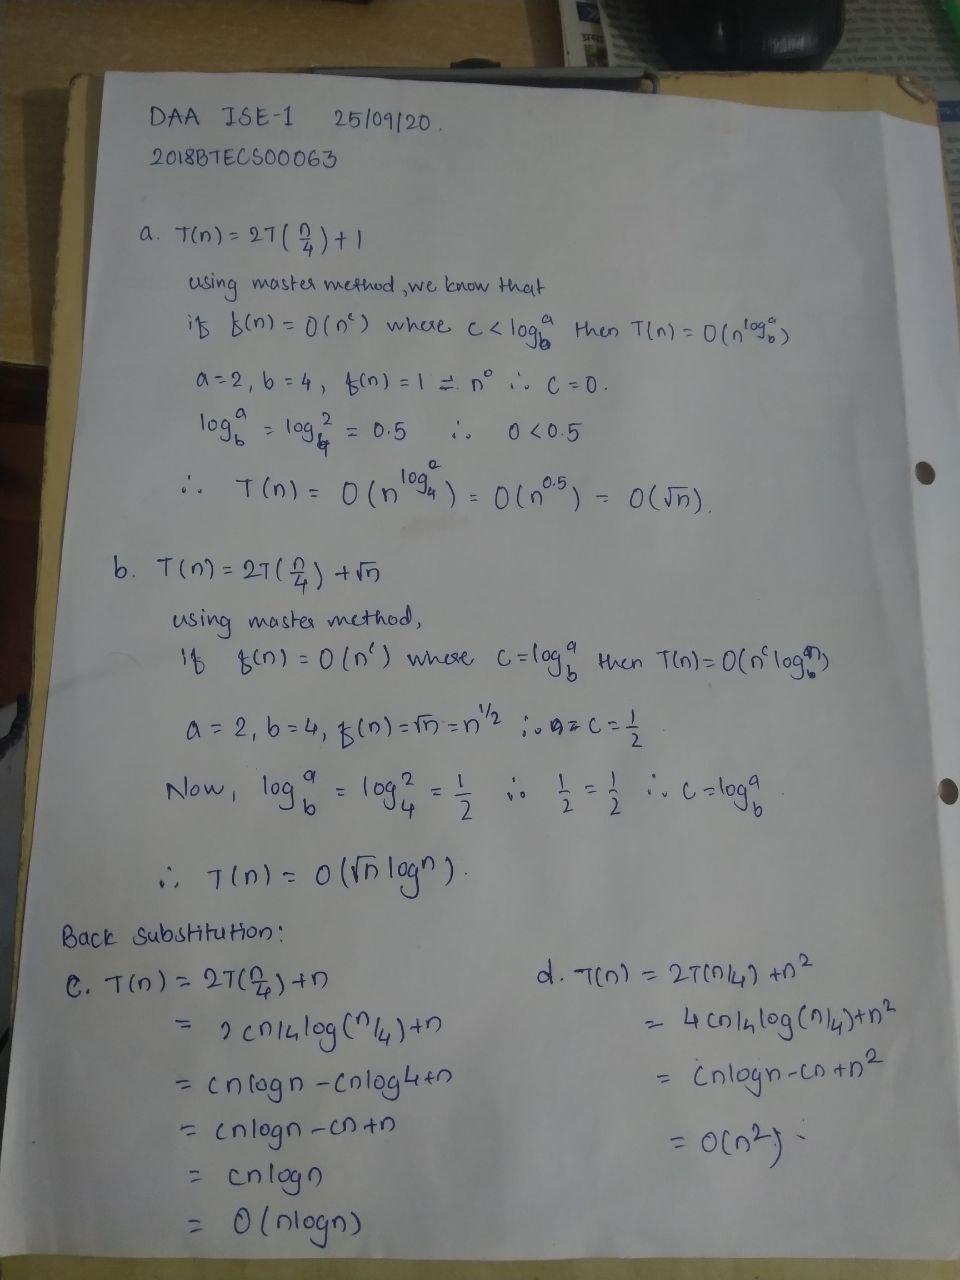 DAA ISE-1 25/09/20.
2018BTECS00063
a. T(n) = 2T(n/4) + 1
using master method, we know that
if f(n) = O(n^c) where c < log_b^a then T(n) = O(n^log_b^a)
a=2, b=4, f(n) = 1 = n^0 ∴ c=0.
log_b^a = log_4^2 = 0.5 ∴ 0<0.5
∴ T(n) = O(n^log_4^2) = O(n^0.5) = O(√n).
b. T(n) = 2T(n/4) + √n
using master method,
if f(n) = O(n^c) where c=log_b^a then T(n) = O(n^c log n)
a = 2, b=4, f(n)=√n=n^1/2 ∴ c = 1/2
Now, log_b^a = log_4^2 = 1/2 ∴ 1/2 = 1/2 ∴ c=log_b^a.
∴ T(n) = O(√n logn).
Back substitution:
c. T(n) = 2T(n/4)+n
= 2cn/4log(n/4)+n
= cnlogn-cnlog4+n
= cnlogn-cn+n
= cnlogn
= O(nlogn)
d. T(n) = 2T(n/4)+n²
= 4cn/4log(n/4)+n²
= cnlogn-cn+n²
= O(n²).